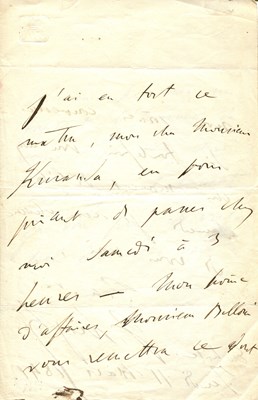 J'ai eu tort ce
matin, mon cher Monsieur
Kuranda, en vous
priant de passer chez
moi Samedi à 3
heures — Mon homme
d'affaires, Monsieur
vous remettra ce dont